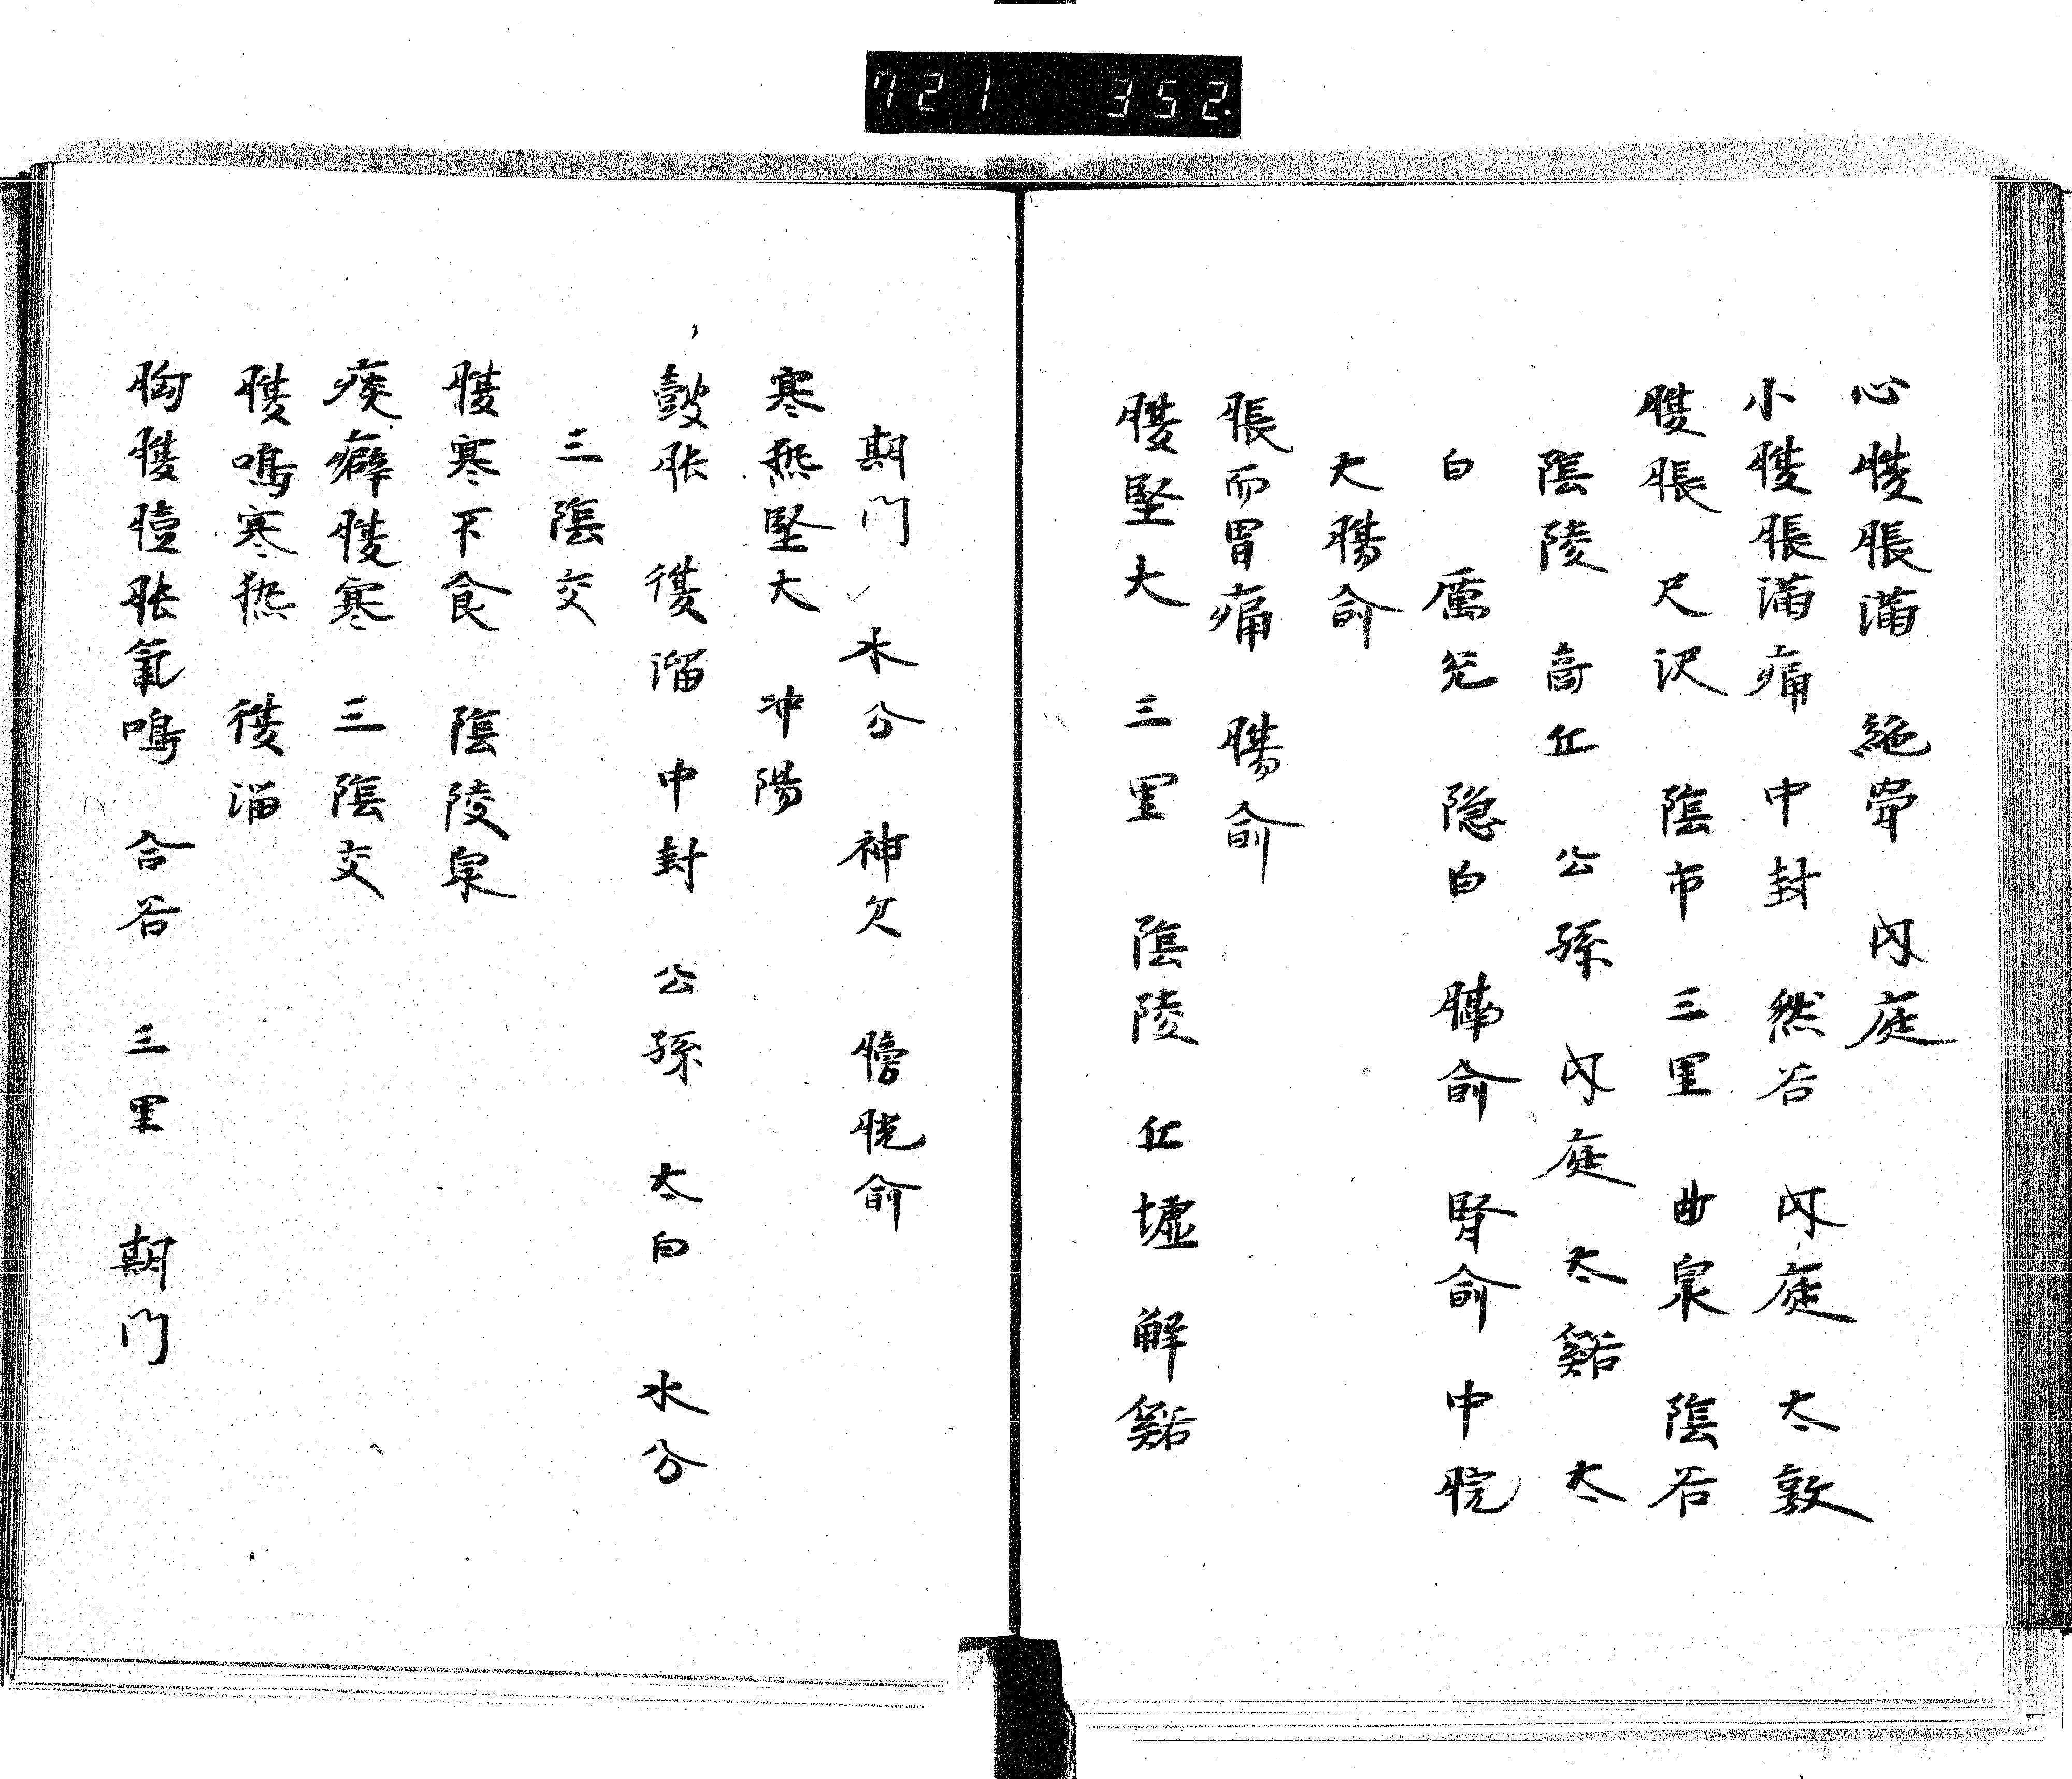 721 352.
心腹脹滿 絶骨 内庭
小腹脹滿痛 中封 然谷 内庭 大敦
腹脹 尺沢 陰市 三里 曲泉 陰谷
陰陵 啇丘 公孫 内庭 太谿 太
白 厲兌 隐白 脾俞 腎俞 中脘
大腸俞
脹而胃痛 腸俞
腹堅大 三里 陰陵 丘墟 解谿
期門 水分 神欠 膀胱俞
寒热堅大 冲陽
鼓胀 復溜 中封 公孫 太白 水分
三陰交
腹寒不食 陰陵泉
痰癖腹寒 三陰交
腹鳴寒热 復溜
胸腹膨胀氣鳴 合谷 三里 期門